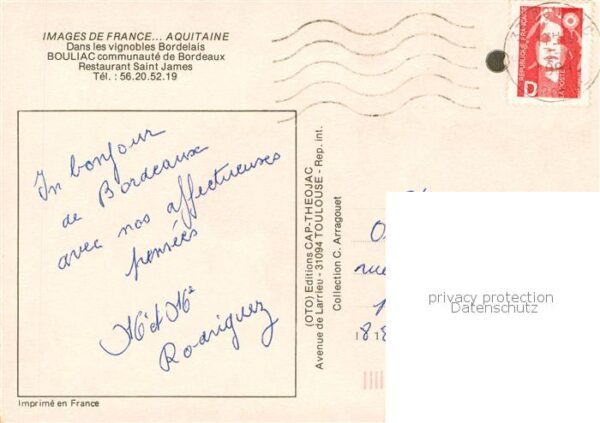 IMAGES DE FRANCE... AQUITAINE
Dans les vignobles Bordelais
BOULIAC communauté de Bordeaux
Restaurant Saint James
Tél. : 56.20.52.19
Un bonjour
de Bordeaux
avec nos affectueuses
pensées
Mr et Me
Rodriguez
Imprimé en France
(OTO) Editions CAP-THEOJAC
Avenue de Larrieu - 31094 TOULOUSE - Rep. int.
Collection C. Arragouet
REPUBLIQUE FRANÇAISE
LA POSTE
D
rue
privacy protection
Datenschutz